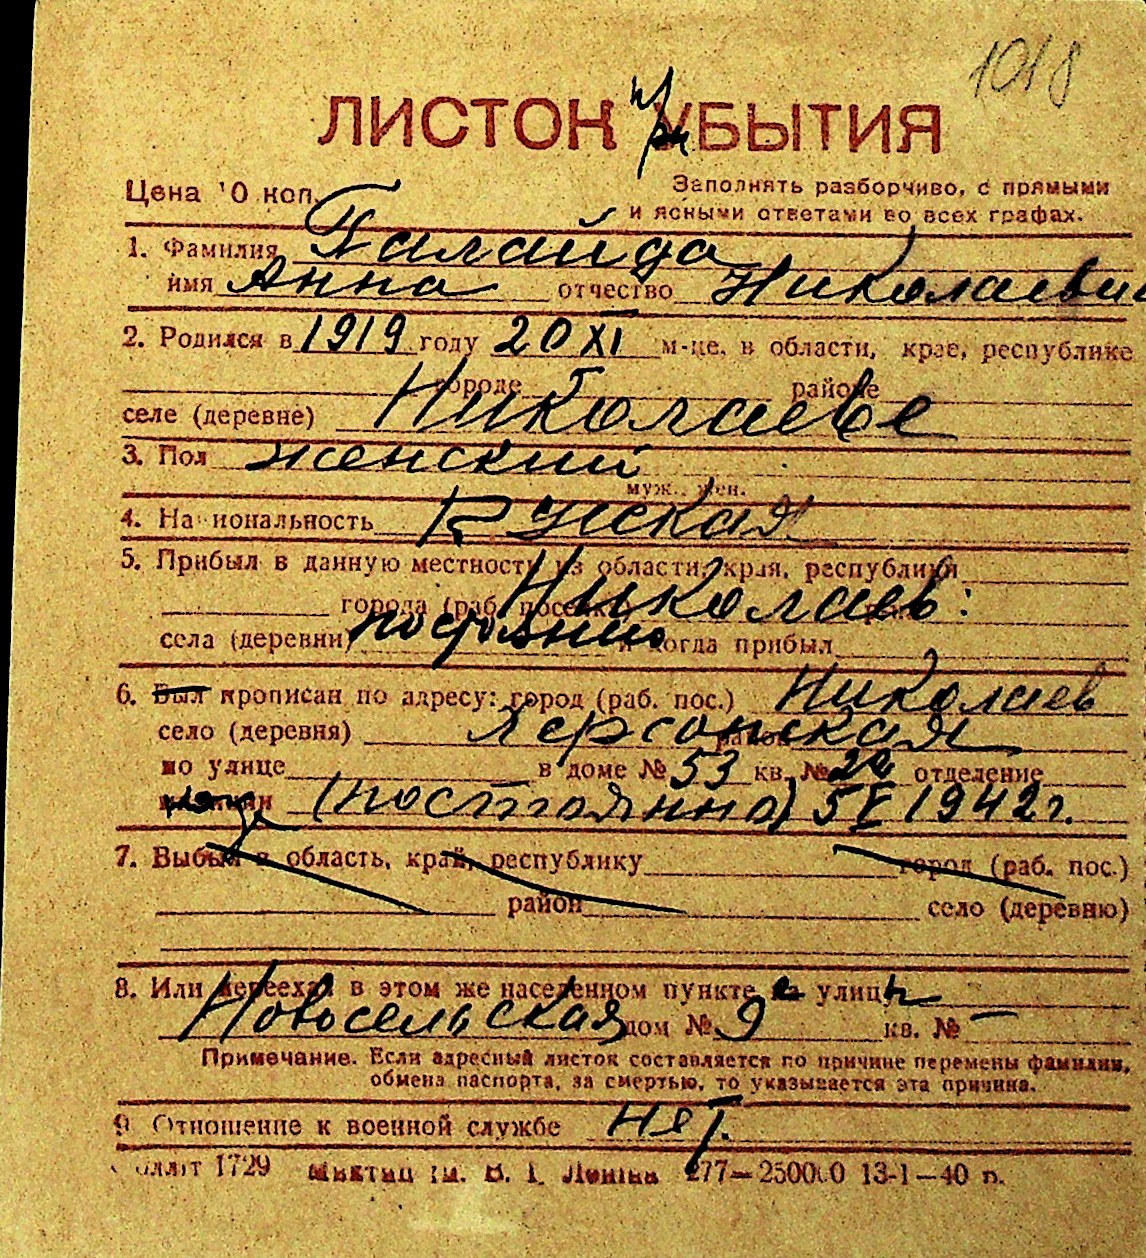 1018
ЛИСТОК при УБЫТИЯ
Цена 10 коп.
Заполнять разборчиво, с прямыми
и ясными ответами во всех графах.
1. Фамилия Галайда
имя Анна отчество Николаевн
2. Родился в 1919 году 20 XI м-це, в области, крае, республике
городе районе
селе (деревне) Николаеве
3. Пол женский
муж., жен.
4. Национальность Руская
5. Прибыл в данную местность из области, края, республики
города (раб. поселка) Николаев:
села (деревни) постоянно и когда прибыл
6. Был прописан по адресу: город (раб. пос.) Николаев
село (деревня) Херсонская район
по улице в доме № 53 кв. № 2а отделение
(постоянно) 5 V 1942 г.
7. Выбыл в область, край, республику город (раб. пос.)
район село (деревню)
8. Или переехал в этом же населенном пункте с улицы
Новосельская дом № 9 кв. № —
Примечание. Если адресный листок составляется по причине перемены фамилии,
обмена паспорта, за смертью, то указывается эта причина.
9. Отношение к военной службе Нет.
1729 им. В. І. Леніна 277—250000 13-1—40 р.